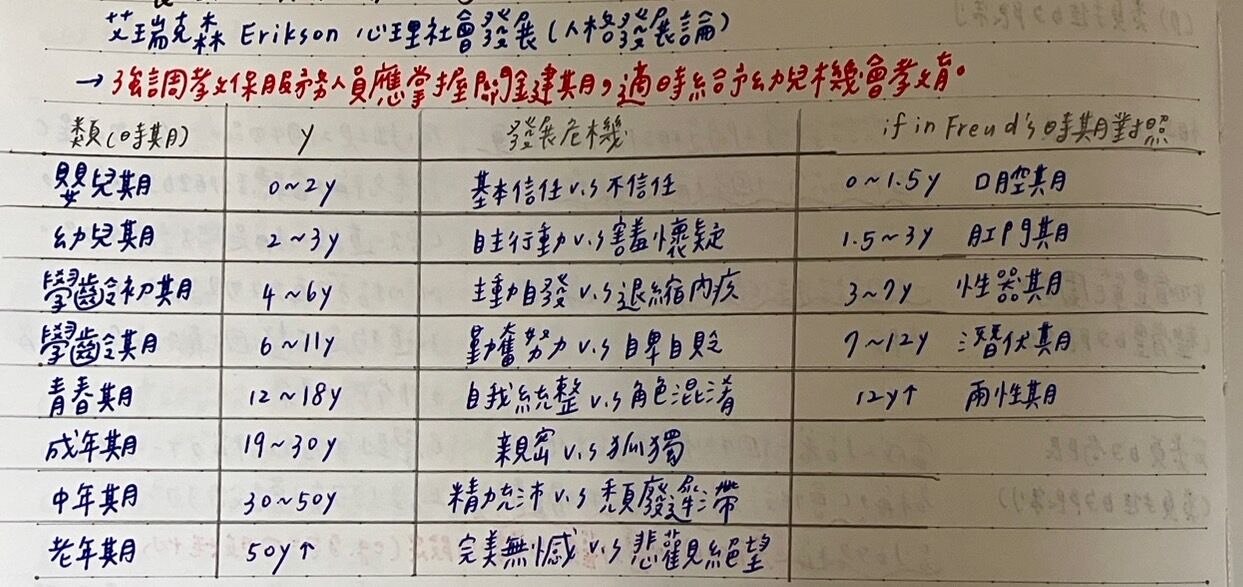 艾瑞克森 Erikson 心理社會發展(人格發展論)
→ 強調教保服務人員應掌握關鍵期，適時給予幼兒機會教育。
類(時期) y 發展危機 if in Freud's時期對照
嬰兒期 0~2y 基本信任 v.s 不信任 0~1.5y 口腔期
幼兒期 2~3y 自主行動 v.s 害羞懷疑 1.5~3y 肛門期
學齡初期 4~6y 主動自發 v.s 退縮內疚 3~7y 性器期
學齡期 6~11y 勤奮努力 v.s 自卑自貶 7~12y 潛伏期
青春期 12~18y 自我統整 v.s 角色混淆 12y↑ 兩性期
成年期 19~30y 親密 v.s 孤獨
中年期 30~50y 精力充沛 v.s 頹廢遲滯
老年期 50y↑ 完美無憾 v.s 悲觀絕望